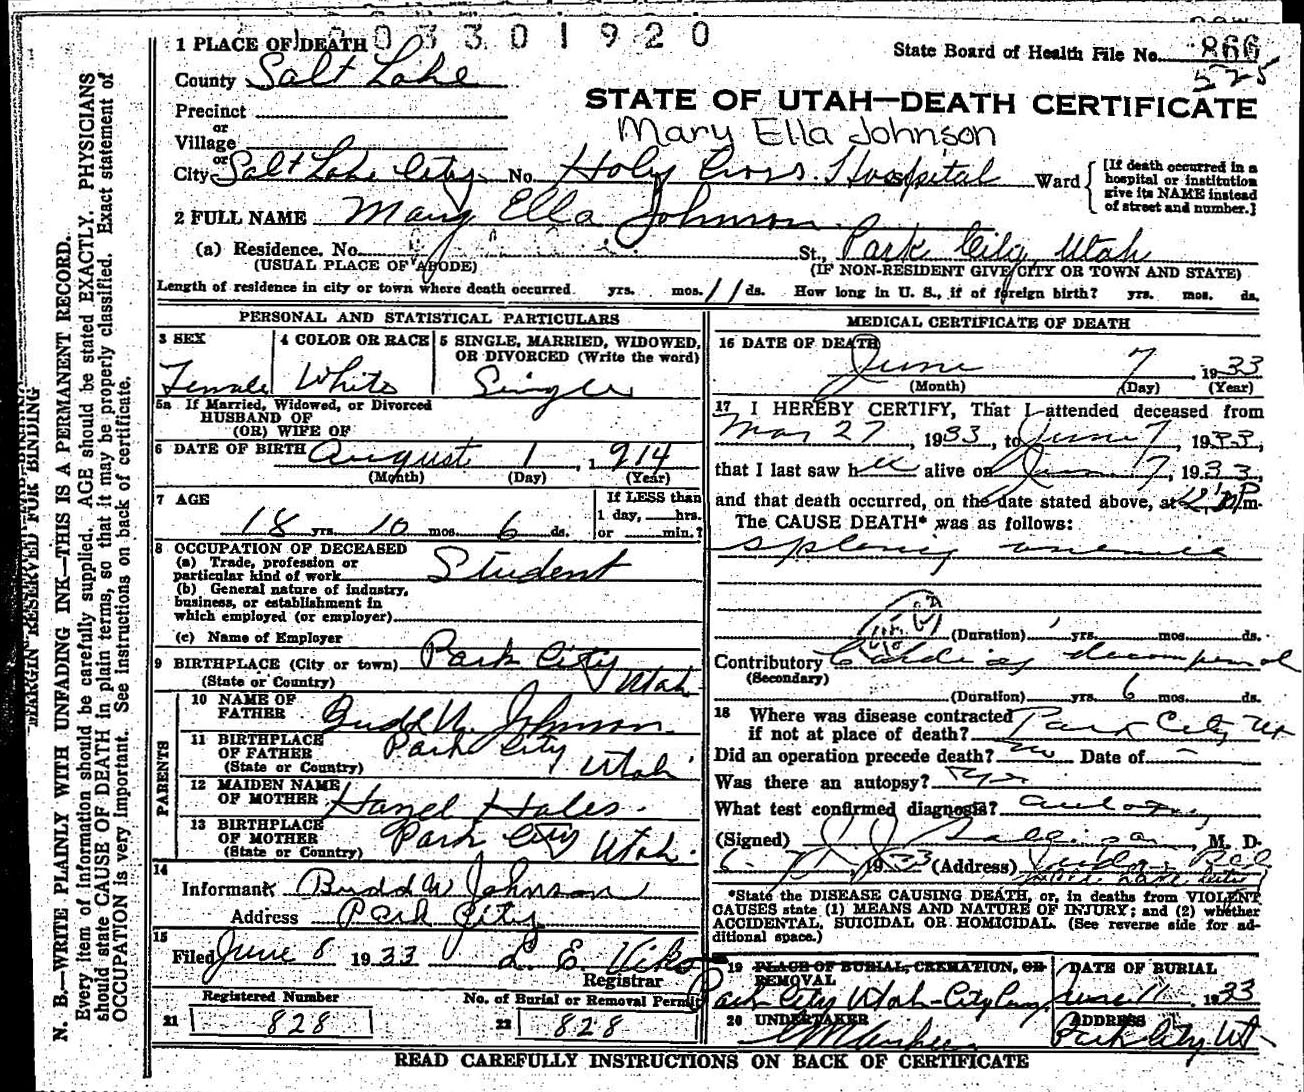 0 0 3 3 0 1 9 2 0
1 PLACE OF DEATH
State Board of Health File No. 866
525
County Salt Lake
STATE OF UTAH—DEATH CERTIFICATE
Precinct
or
Village
Mary Ella Johnson
or
City Salt Lake City No. Holy Cross Hospital Ward
[If death occurred in a hospital or institution give its NAME instead of street and number.]
2 FULL NAME Mary Ella Johnson
(a) Residence. No. St., Park City, Utah
(USUAL PLACE OF ABODE) (IF NON-RESIDENT GIVE CITY OR TOWN AND STATE)
Length of residence in city or town where death occurred yrs. mos. 11 ds. How long in U. S., if of foreign birth? yrs. mos. ds.
PERSONAL AND STATISTICAL PARTICULARS
3 SEX Female
4 COLOR OR RACE White
5 SINGLE, MARRIED, WIDOWED, OR DIVORCED (Write the word) Single
5a If Married, Widowed, or Divorced
HUSBAND OF
(OR) WIFE OF
6 DATE OF BIRTH August 1, 1914
(Month) (Day) (Year)
7 AGE 18 yrs. 10 mos. 6 ds.
If LESS than
1 day, hrs.
or min.?
8 OCCUPATION OF DECEASED
(a) Trade, profession or
particular kind of work Student
(b) General nature of industry,
business, or establishment in
which employed (or employer)
(c) Name of Employer
9 BIRTHPLACE (City or town) Park City
(State or Country) Utah
PARENTS
10 NAME OF
FATHER Budd W. Johnson
11 BIRTHPLACE
OF FATHER Park City
(State or Country) Utah
12 MAIDEN NAME
OF MOTHER Hazel Hales
13 BIRTHPLACE
OF MOTHER Park City
(State or Country) Utah
14
Informant Budd W Johnson
Address Park City
15
Filed June 8 1933 L. E. Viko
Registrar
Registered Number
21 828
No. of Burial or Removal Permit
22 828
MEDICAL CERTIFICATE OF DEATH
16 DATE OF DEATH
June 7, 1933
(Month) (Day) (Year)
17 I HEREBY CERTIFY, That I attended deceased from
27, 1933, to June 7, 1933,
that I last saw her alive on June 7, 1933,
and that death occurred, on the date stated above, at P m.
The CAUSE DEATH* was as follows:
splenic anemia
(Duration) yrs. mos. ds.
Contributory Cardiac
(Secondary)
(Duration) yrs. 6 mos. ds.
18 Where was disease contracted
if not at place of death? Park City Ut
Did an operation precede death? no Date of –
Was there an autopsy? yes
What test confirmed diagnosis? autopsy
(Signed) M. D.
6- 1933 (Address)
Salt Lake City
*State the DISEASE CAUSING DEATH, or, in deaths from VIOLENT
CAUSES state (1) MEANS AND NATURE OF INJURY; and (2) whether
ACCIDENTAL, SUICIDAL OR HOMICIDAL. (See reverse side for ad-
ditional space.)
19 PLACE OF BURIAL, CREMATION, OR
REMOVAL
Park City Utah - City Cem.
DATE OF BURIAL
June 11, 1933
20 UNDERTAKER
ADDRESS
Park City Ut
READ CAREFULLY INSTRUCTIONS ON BACK OF CERTIFICATE
MARGIN RESERVED FOR BINDING
N. B.—WRITE PLAINLY WITH UNFADING INK—THIS IS A PERMANENT RECORD.
Every item of information should be carefully supplied. AGE should be stated EXACTLY. PHYSICIANS
should state CAUSE OF DEATH in plain terms, so that it may be properly classified. Exact statement of
OCCUPATION is very important. See instructions on back of certificate.